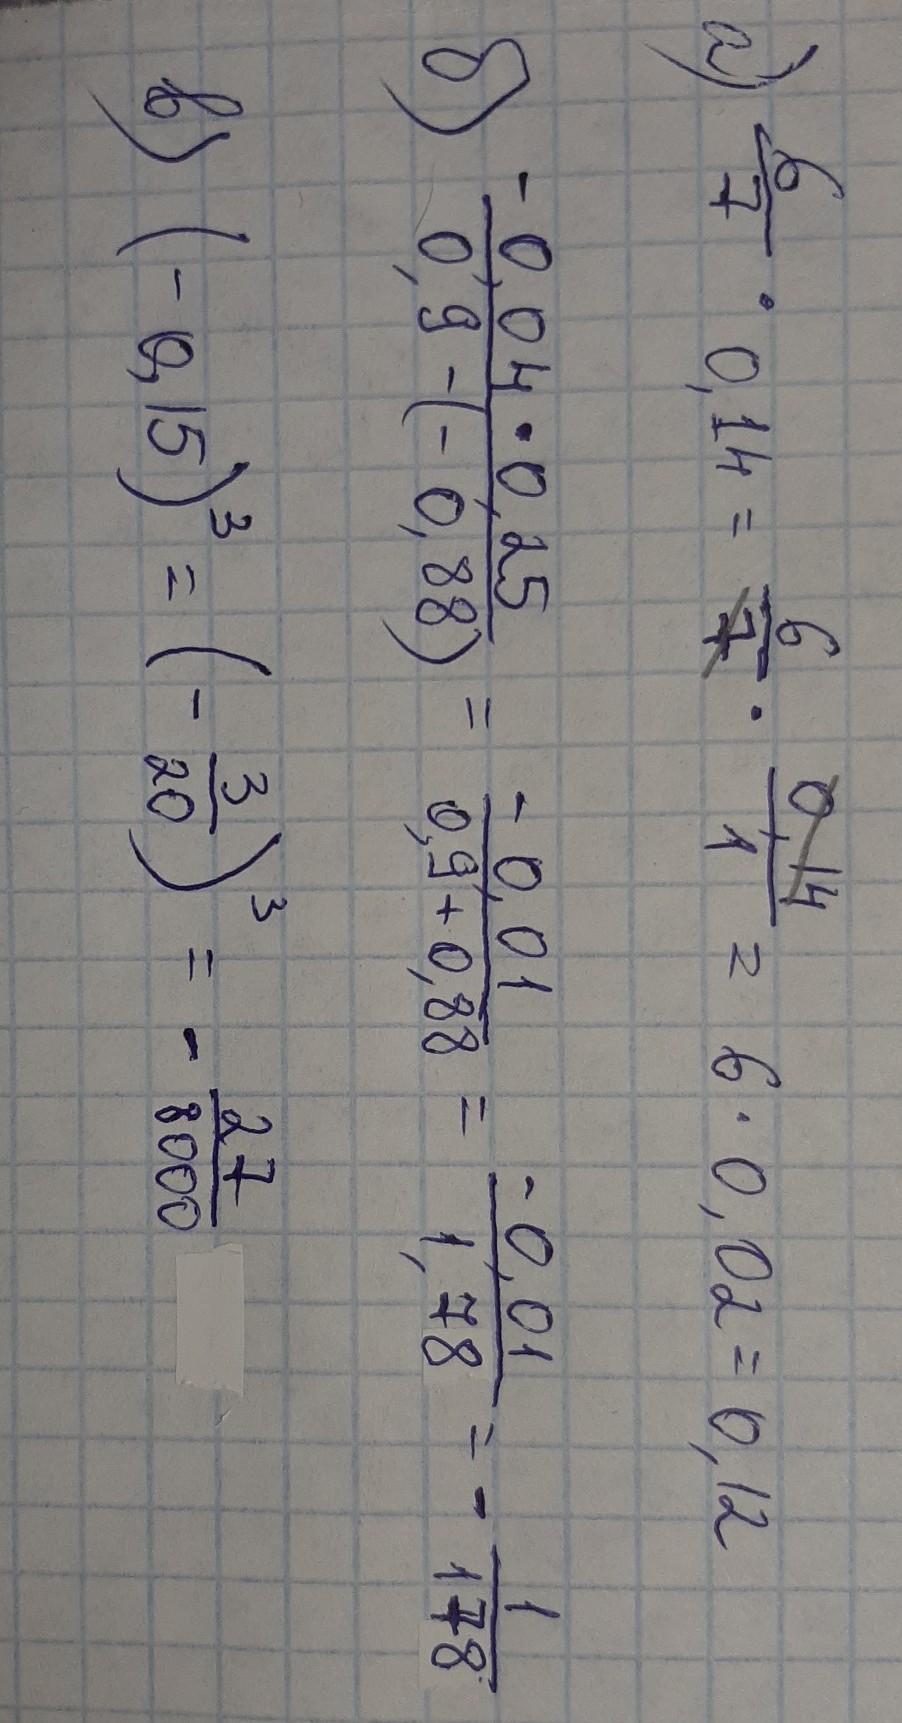 а) 6/7 · 0,14 = 6/7 · 0,14/1 = 6 · 0,02 = 0,12
б) -0,04 · 0,25/0,9 - (- 0,88) = -0,01/0,9 + 0,88 = -0,01/1,78 = - 1/178
в) (- 0,15)³ = (- 3/20)³ = - 27/8000